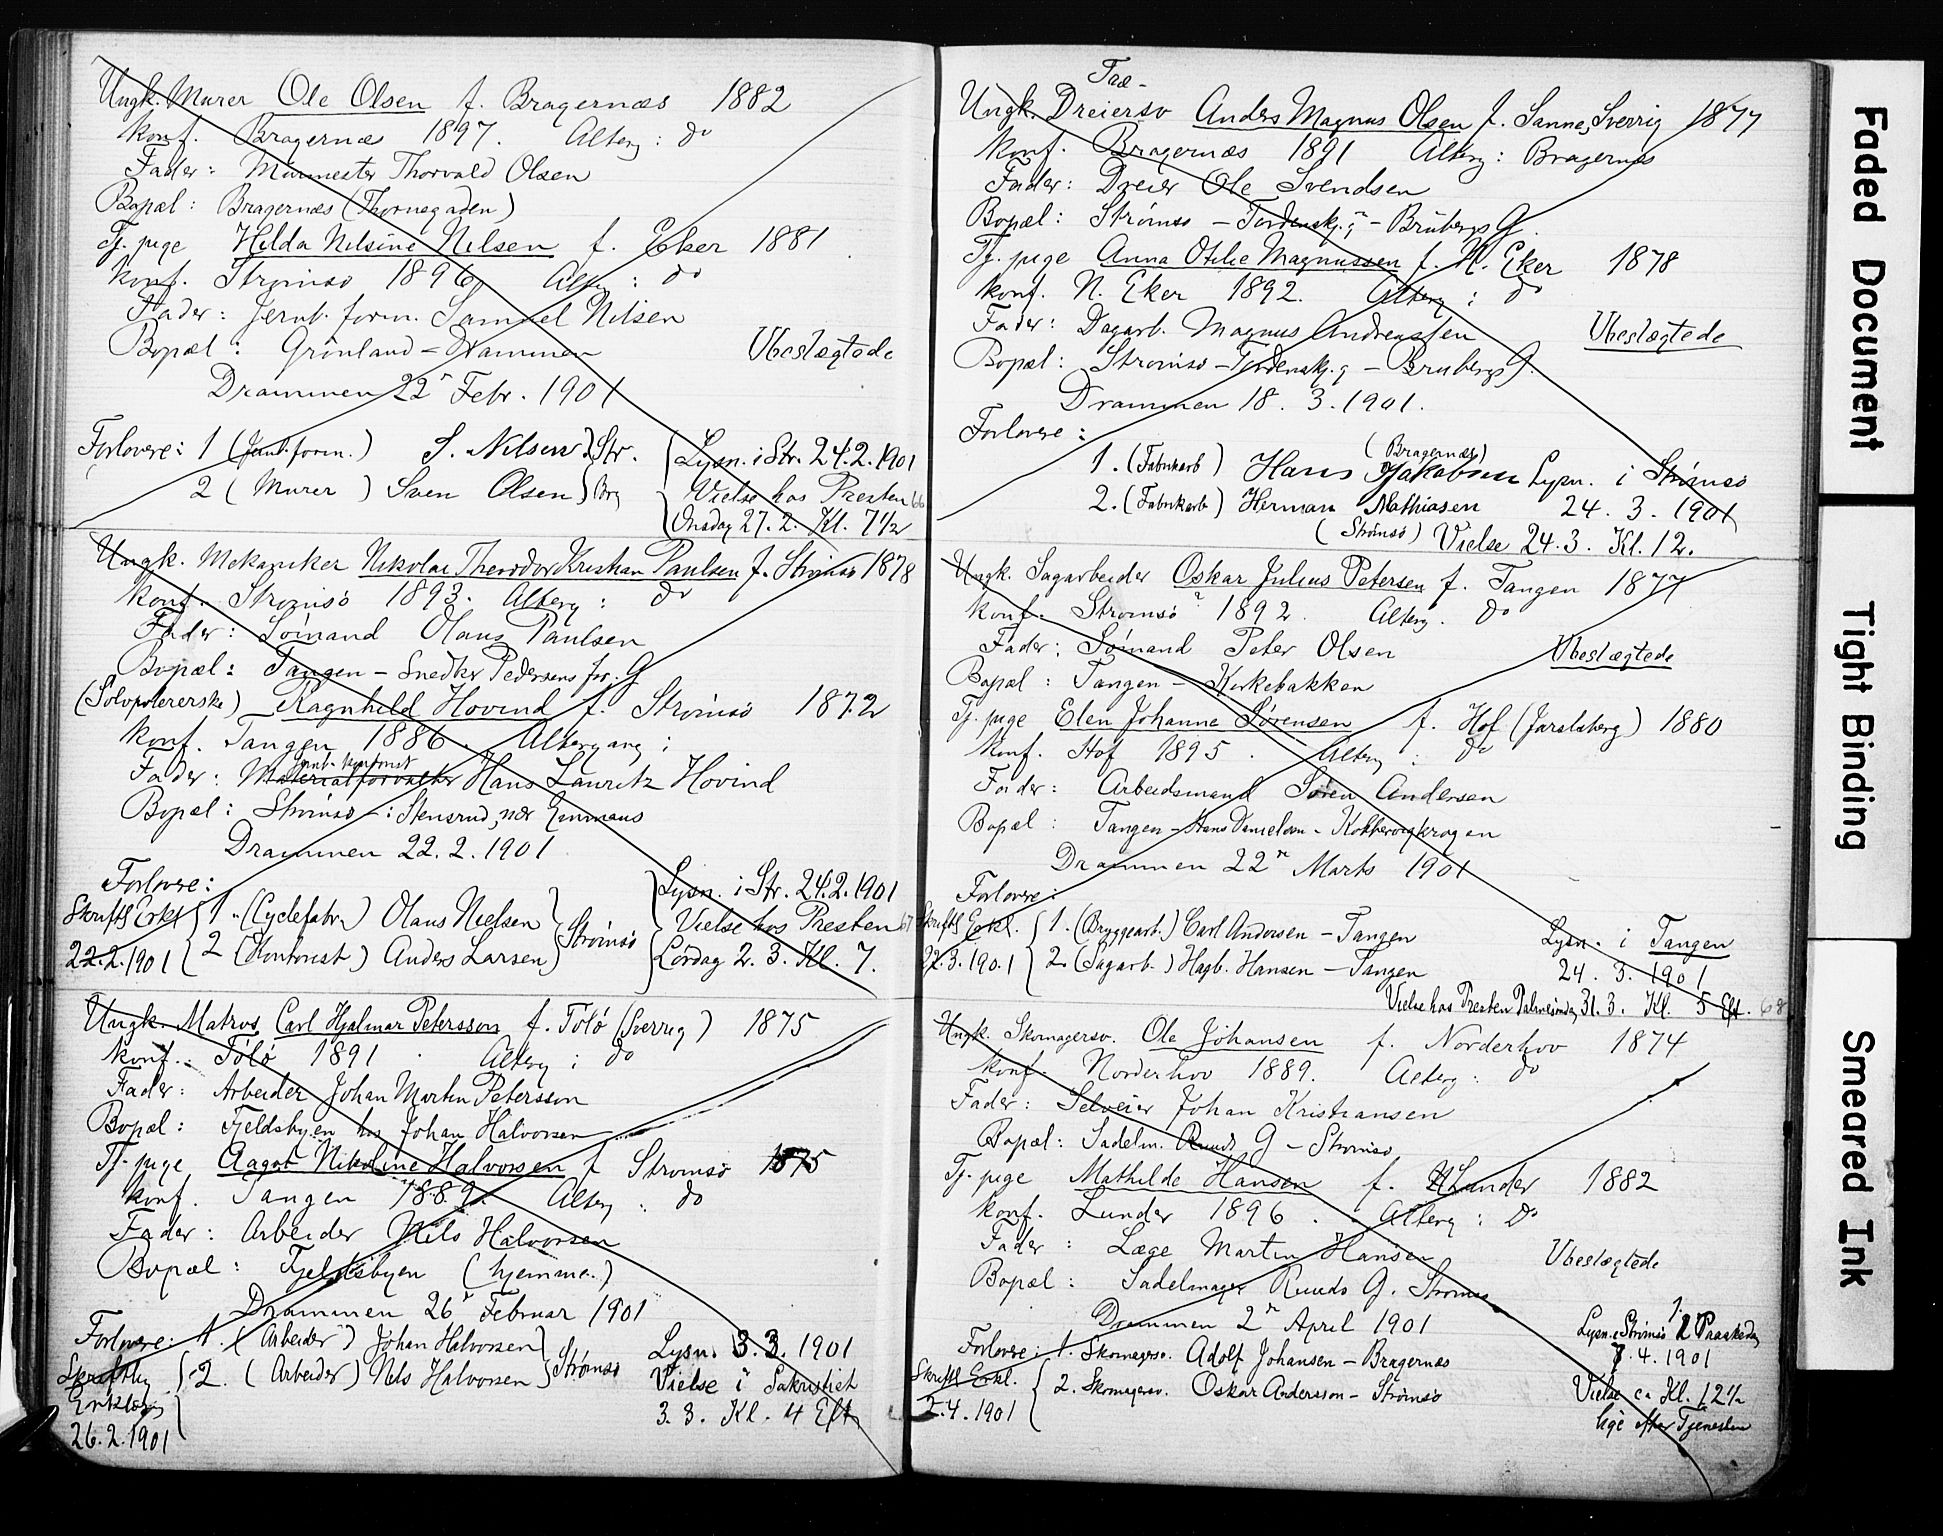 Ungk. Murer Ole Olsen f. Bragernæs 1882
konf. Bragernæs 1897. Alterg: do
Fader: Murmester Thorvald Olsen
Bopæl: Bragernæs (Thornegaden)
Tj. pige Hilda Nilsine Nilsen f. Eker 1881
konf. Strømsø 1896 Alterg: do
Fader: Jernb. form. Samuel Nilsen
Bopæl: Grønland - Drammen Ubeslægtede
Drammen 22 Febr. 1901
Forlovere: 1 (Jernb. form.) S. Nilsen Str.
2 (Murer) Sven Olsen Brg
Lysn. i Str. 24.2.1901
Vielse hos Presten 66
Onsdag 27.2. Kl. 7 1/2
Ungk. Mekaniker Nikolai Theodor Kristian Paulsen f. Strømsø 1878
konf. Strømsø 1893. Alterg: do
Fader: Sømand Olaus Paulsen
Bopæl: Tangen - Snedker Pedersens for. G
(Sølvpolererske) Ragnhild Hovind f. Strømsø 1872
konf. Tangen 1886. Altergang:
Jernb. kontorist
Fader: Materialforvalter Hans Lauritz Hovind
Bopæl: Strømsø -: Stensrud, nær Emmaus
Drammen 22.2.1901
Forlovere:
Skriftl Erkl 1. (Cyclefabr.) Olaus Nielsen
22.2.1901 2 (Kontorist) Anders Larsen Strømsø
Lysn. i Str. 24.2.1901
Vielse hos Presten 67
Lördag 2.3. Kl. 7.
Ungk. Matros Carl Hjalmar Petersson f. Tölö (Sverrig) 1875
konf. Tölö 1891 Alterg: do
Fader: Arbeider Johan Martin Petersson
Bopæl: Fjeldsbyen hos Johan Halvorsen
Tj. pige Aagot Nikoline Halvorsen f Strømsø 1875
konf. Tangen 1889. Alterg: do
Fader: Arbeider Nils Halvorsen
Bopæl: Fjeldsbyen (hjemme.)
Drammen 26 Februar 1901
Forlovere: 1. (Arbeider) Johan Halvorsen
Skriftlig 2. (Arbeider) Nils Halvorsen Strømsø
Erklæring
26.2.1901
Lysn. 3.3.1901
Vielse i Sakristiet
3.3. Kl. 4 Eft
Ungk. Dreiersv Anders Magnus Olsen f. Sanne, Sverrig 1877
konf. Bragernæs 1891 Alterg: Bragernæs
Fader: Dreier Ole Svendsen
Bopæl: Strømsø - Tordenskj. g - Brubergs G.
Tj. pige Anna Otilie Magnussen f. N. Eker 1878
konf. N. Eker 1892. Alterg: do
Fader: Dagarb. Magnus Andreassen Ubeslægtede
Bopæl: Strømsø - Tordenskj. g - Brubergs G.
Drammen 18.3.1901.
Forlovere:
(Bragernæs)
1. (Fabrikarb) Hans Jakobsen Lysn. i Strømsø
2. (Fabrikarb) Herman Mathiasen 24.3.1901
(Strømsø) Vielse 24.3. Kl. 12.
Ungk. Sagarbeider Oskar Julius Petersen f. Tangen 1877
konf. Strømsø? 1892. Alterg. do
Fader: Sømand Peter Olsen Ubeslægtede
Bopæl: Tangen - Kirkebakken
Tj. pige Elen Johanne Sørensen f. Hof (Jarlsberg) 1880
konf. Hof 1895. Alterg: do
Fader: Arbeidsmand Søren Andersen
Bopæl: Tangen - Hans Danielsen - Kobbervigkrogen
Drammen 22 Marts 1901
Forlovere:
Skriftl Erkl. 1. (Bryggearb.) Carl Andersen - Tangen Lysn. i Tangen
22.3.1901 2. (Sagarb.) Hagb. Hansen - Tangen 24.3.1901
Vielse hos Presten Palmesøndag 31.3. Kl. 5 Eft. 68
Ungk. Skomagersv. Ole Johansen f. Norderhov 1874
konf. Norderhov 1889. Alterg: do
Fader: Selveier Johan Kristiansen
Bopæl: Sadelm. Ruud. G - Strømsø
Tj. pige Mathilde Hansen f. Lunder 1882
konf. Lunder 1896. Alterg: do
Fader: Læge Martin Hansen Ubeslægtede
Bopæl: Sadelmager Ruuds G. Strømsø
Drammen 2 April 1901
Forlovere: 1. Skomagersv. Adolf Johansen - Bragernæs
Skriftl Erkl. 2. Skomagersv. Oskar Andersson - Strømsø
2.4.1901
Lysn. i Strømsø 1 Paaskedag
7.4.1901
Vielse ca Kl. 12 1/2
lige efter Tjenesten
Faded Document
Tight Binding
Smeared Ink